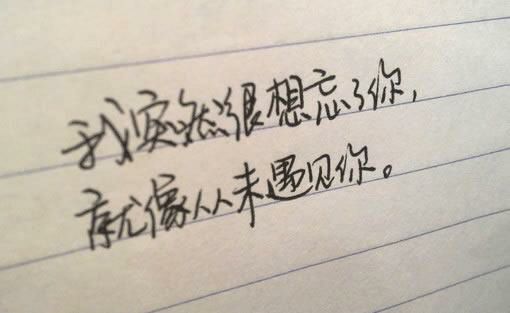 我突然很想忘了你，
就像从未遇见你。